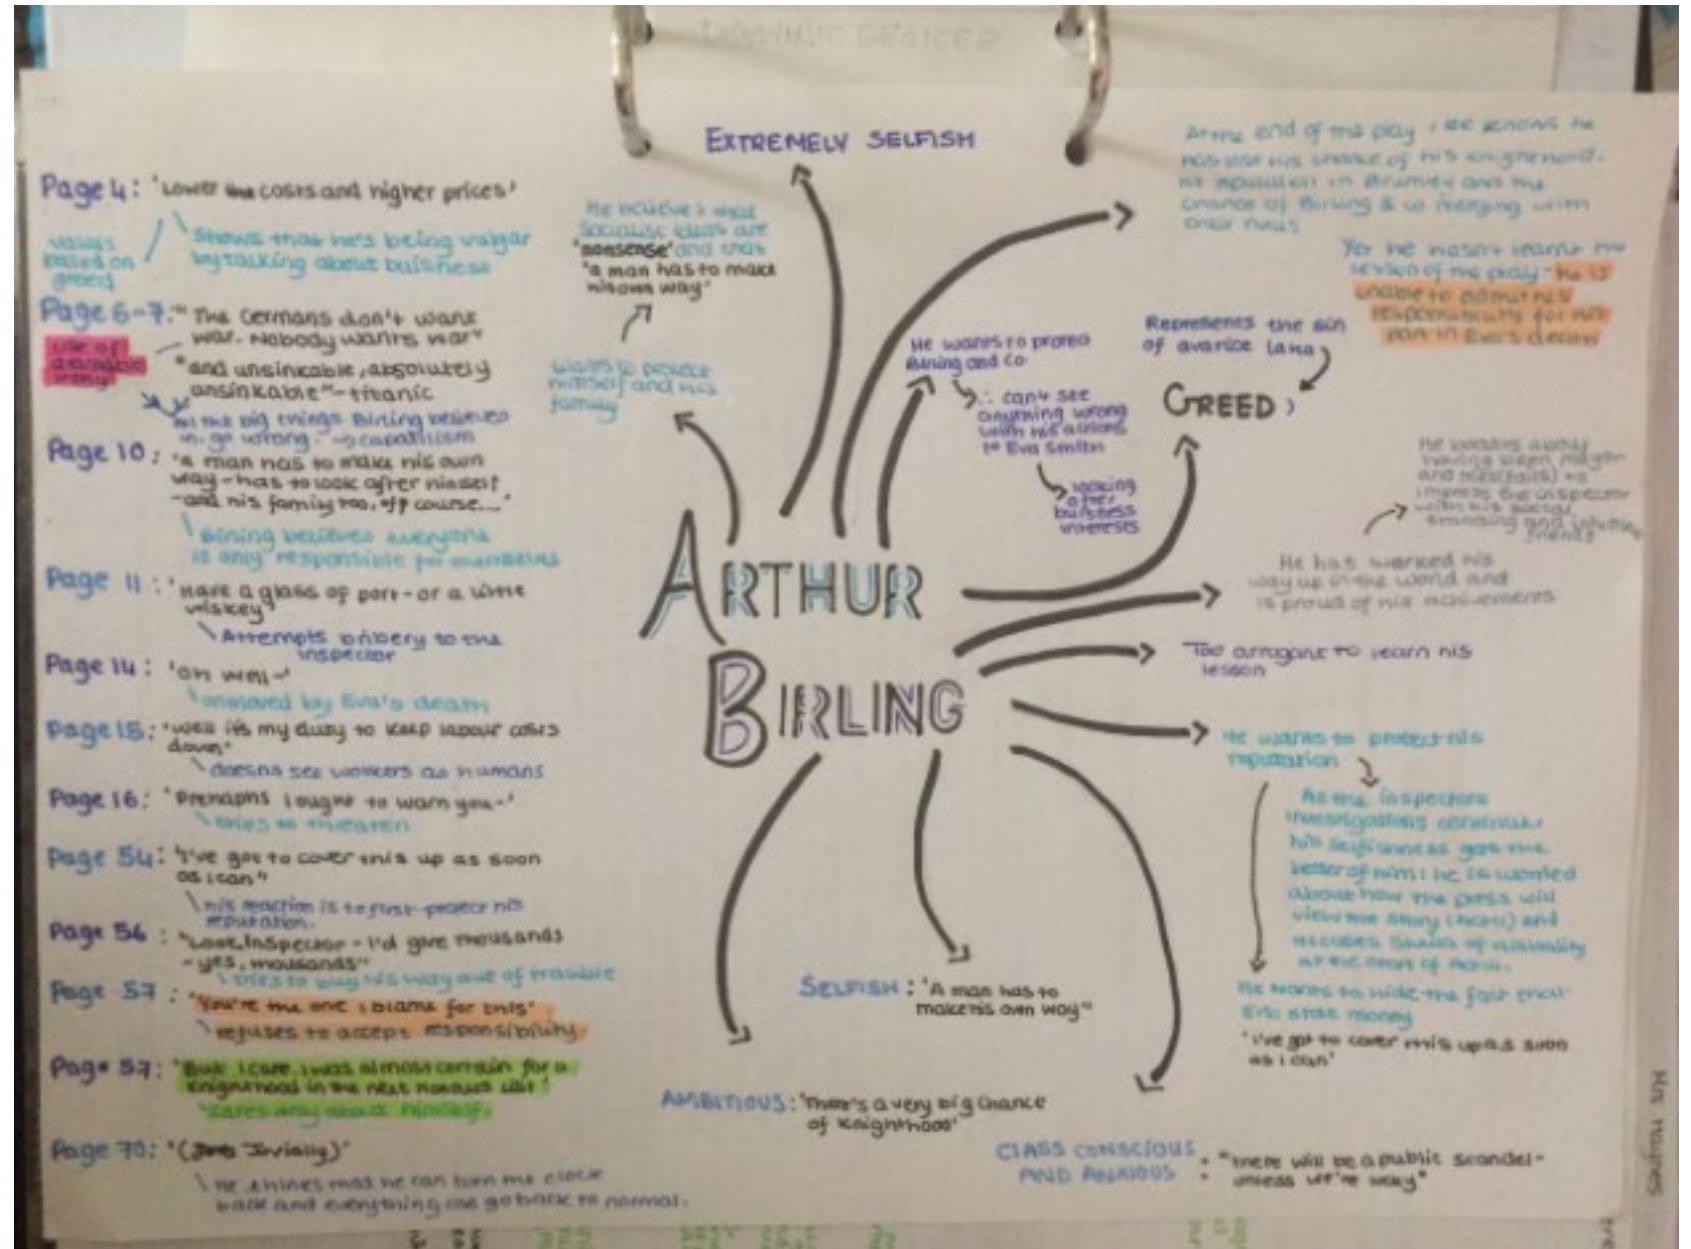 EXTREMELY SELFISH
Page 4: 'Lower costs and higher prices'
Shows that he's being vulgar
by talking about buisness
values
based on
greed
Page 6-7: "The Germans don't want
war. Nobody wants war"
use of
dramatic
irony
"and unsinkable, absolutely
unsinkable" - titanic
All the big things Birling believes
in go wrong. → capatilism
Page 10: "a man has to make his own
way - has to look after himself
- and his family too, off course..."
Birling believes everyone
is only responsible for themselves
Page 11: 'Have a glass of port - or a little
wiskey'
Attempts bribery to the
inspector
Page 14: 'oh well-'
unmoved by Eva's death
Page 15: "well it's my duty to keep labour costs
down"
doesns see workers as humans
Page 16: 'Prehaphs I ought to warn you-'
tries to threaten
Page 54: "I've got to cover this up as soon
as i can"
his reaction is to first protect his
reputation.
Page 56: "Look, Inspector - I'd give thousands
- yes, thousands"
tries to buy his way out of trouble
Page 57: "You're the one i blame for this"
refuses to accept responsibility.
Page 57: "But i care. i was almost certain for a
knighthood in the next honours list'
cares only about himself.
Page 70: '( Jovially)'
he thinks that he can turn the clock
back and everything can go back to normal.
He believes that
Socialist ideas are
'nonsense' and that
"a man has to make
his own way"
wants to protect
himself and his
family
At the end of the play, he knows he
has lost his chance of his knighthood,
his reputation in Brumley and the
chance of Birling & co merging with
their rivals
Yet he hasn't learnt the
lesson of the play: he is
unable to admit his
responsibility for his
part in Eva's death
He wants to protect
Birling and Co.
∴ can't see
anything wrong
with his actions
to Eva Smith
looking
after
buisness
interests
Represents the sin
of avarice
GREED
ARTHUR
BIRLING
He boasts about
having been mayor
and to
impress the inspector
with his social
standing and
friends
He has worked his
way up in the world and
is proud of his achivements
Too arrogant to learn his
lesson
He wants to protect his
reputation
As the inspectors
investigations continue,
his selfishness gets the
better of him: he is worried
about how the press will
view the story and
accuses Sheila of
at the start of
He wants to hide the fact that
Eric stole money
'I've got to cover this up as soon
as i can'
SELFISH: 'A man has to
make his own way"
AMBITIOUS: 'There's a very big chance
of knighthood'
CLASS CONSCIOUS
AND ANXIOUS : "there will be a public scandel -
unless we're lucky"